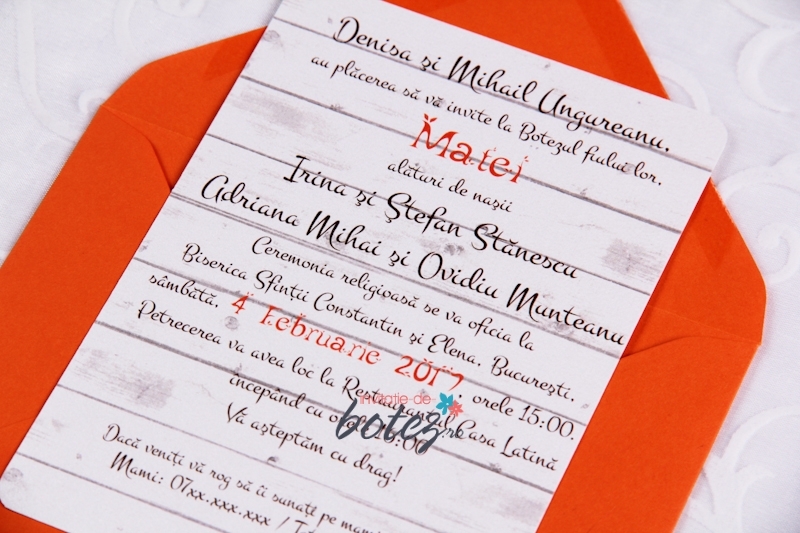 Denisa şi Mihail Ungureanu,
au plăcerea să vă invite la Botezul fiului lor,
Matei
alături de naşii
Irina şi Ştefan Stănescu
Adriana Mihai şi Ovidiu Munteanu
Ceremonia religioasă se va oficia la
Biserica Sfinţii Constantin şi Elena, Bucureşti,
sâmbătă, 4 Februarie 2017, orele 15:00.
Petrecerea va avea loc la Restaurantul Casa Latină
începând cu
Vă aşteptăm cu drag!
Dacă veniţi vă rog să îi sunaţi pe mami
Mami: 07xx.xxx.xxx /
invitatie-de-
botez.ro